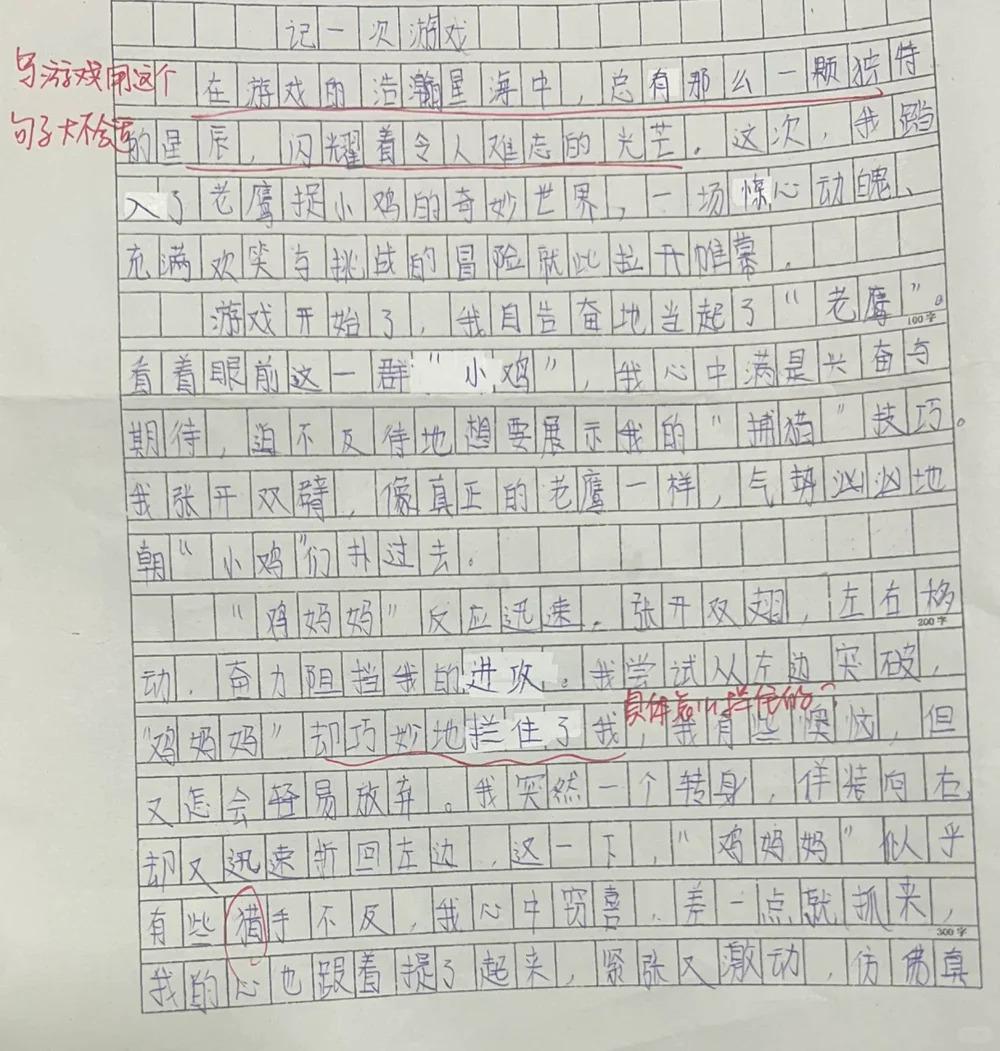 记一次游戏
写游戏用这个
在游戏的浩瀚星海中，总有那么一颗独特
句子大不合适
的星辰，闪耀着令人难忘的光芒。这次，我踏
入了老鹰捉小鸡的奇妙世界，一场惊心动魄、
充满欢笑与挑战的冒险就此拉开帷幕。
游戏开始了，我自告奋地当起了“老鹰”。
100字
看着眼前这一群“小鸡”，我心中满是兴奋与
期待，迫不反待地想要展示我的“捕猎”技巧。
我张开双臂，像真正的老鹰一样，气势汹汹地
朝“小鸡”们扑过去。
“鸡妈妈”反应迅速，张开双翅，左右移
200字
动，奋力阻挡我的进攻。我尝试从左边突破，
具体怎么拦住的？
“鸡妈妈”却巧妙地拦住了我，我有些懊恼，但
又怎会轻易放弃。我突然一个转身，佯装向右，
却又迅速折回左边，这一下，“鸡妈妈”似乎
有些猎手不反，我心中窃喜，差一点就抓来，
300字
我的心也跟着提了起来，紧张又激动，仿佛真